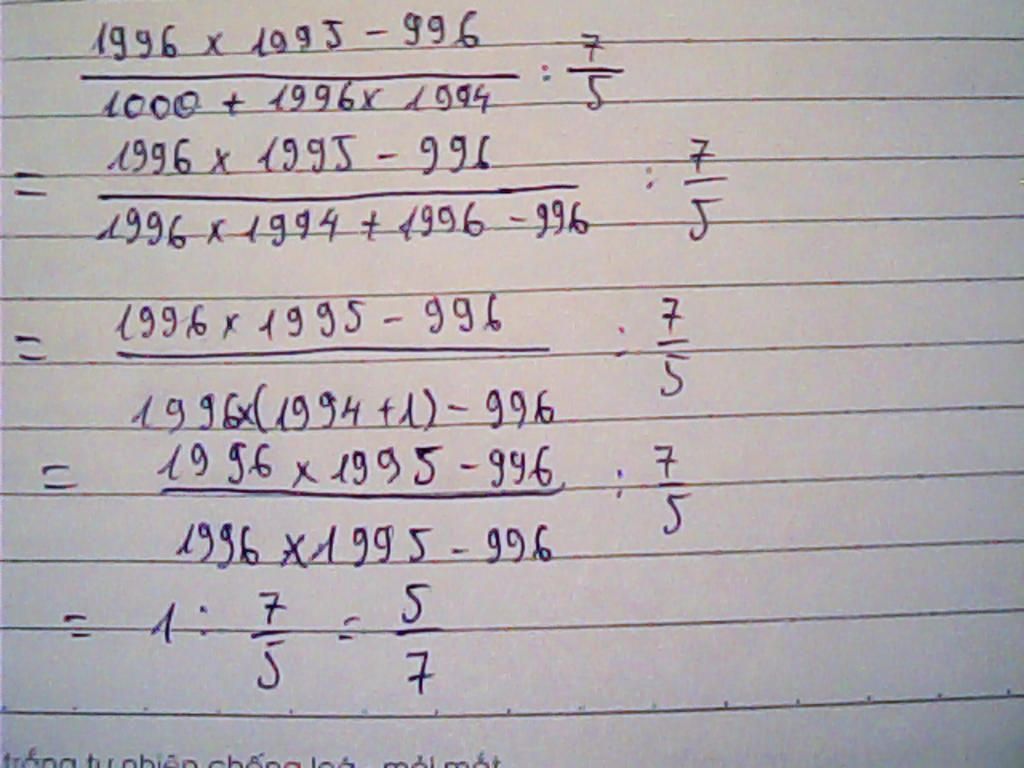 1996 x 1995 - 996
: 7/5
1000 + 1996 x 1994
1996 x 1995 - 996
= : 7/5
1996 x 1994 + 1996 - 996
1996 x 1995 - 996
= : 7/5
1996x(1994 + 1) - 996
1996 x 1995 - 996
= : 7/5
1996 x 1995 - 996
= 1 : 7/5 = 5/7
trắng tự nhiên chống loá, mỏi mắt